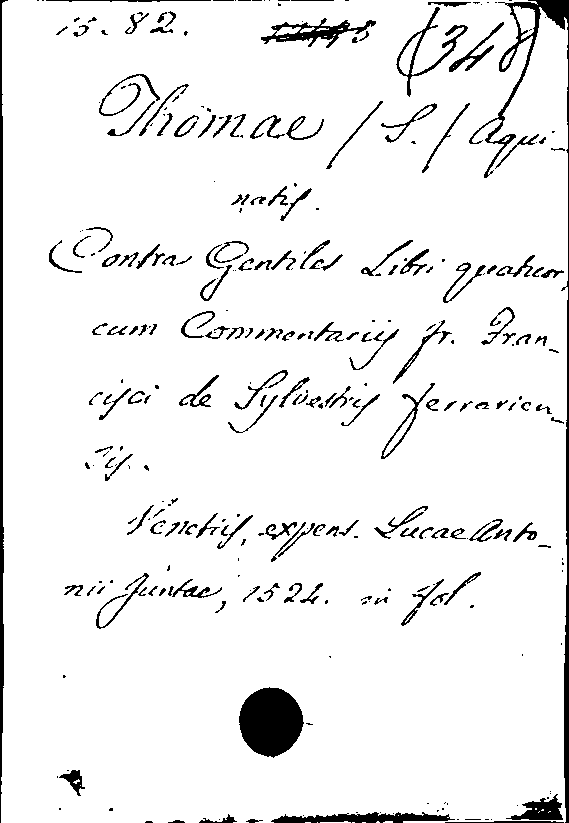 15.82. (348)
Thomae / S. / Aqui-
natis.
Contra Gentiles Libri quatuor,
cum Commentariis fr. Fran-
cisci de Sylvestris ferrarien-
sis.
Venetiis, expens. Lucae Anto-
nii Juntae, 1524. in fol.